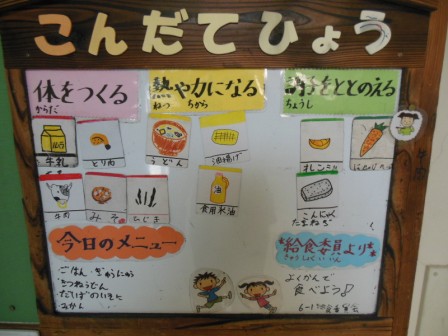 こんだてひょう
体をつくる
からだ
熱や力になる
ねつ ちから
調子をととのえる
ちょうし
牛乳
とり肉
うどん
油揚げ
オレンジ
にんじん
牛肉
みそ
ひじき
食用米油
こんにゃく
たまねぎ
今日のメニュー
ごはん・ぎゅうにゅう
きつねうどん
だいずのいそに
みかん
給食委員より
きゅうしょくいいん
よくかんで
食べよう♪